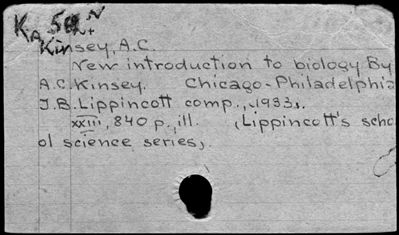 Kinsey, A.C.
New introduction to biology By
A.C. Kinsey. Chicago-Philadelphia
J.B. Lippincott comp., 1933.
xxiii, 840 p., ill. (Lippincott's scho
ol science series)